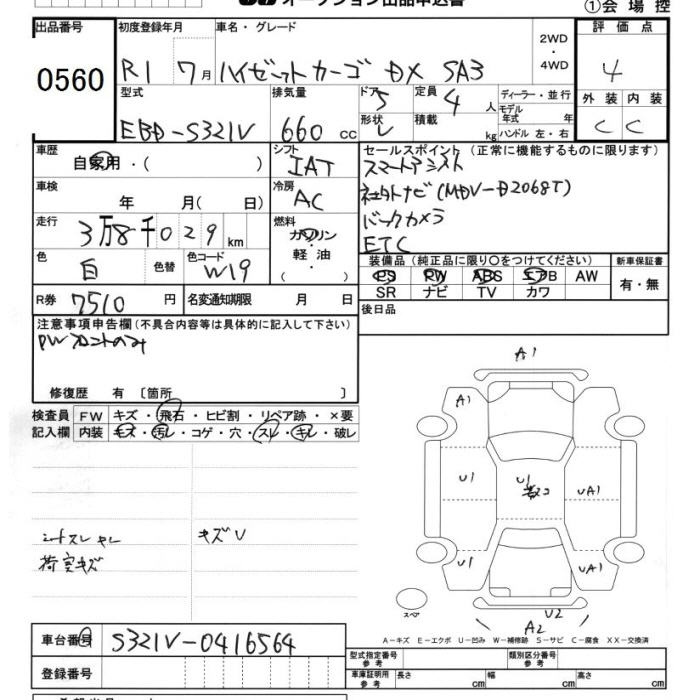 オークション出品申込書
①会場控
出品番号 初度登録年月 車名・グレード 2WD・4WD 評価点
0560 R1 7月 ハイゼットカーゴ DX SA3 4
型式 排気量 ドア 定員 ディーラー・並行 外装 内装
EBD-S321V 660cc 5 4人 モデル年式 年 C C
形状 V 積載 kg ハンドル 左・右
車歴 自家用・( ) シフト IAT セールスポイント (正常に機能するものに限ります)
スマートアシスト
車検 年 月( 日) 冷房 AC 社外ナビ(MDV-D206BT)
バックカメラ
走行 3万8千029km 燃料 ガソリン・軽油・( ) ETC
色 白 色替 色コード W19 装備品 (純正品に限り○をつけてください) 新車保証書
PS PW ABS エアB AW 有・無
SR ナビ TV カワ
R券 7510円 名変通知期限 月 日 後日品
注意事項申告欄(不具合内容等は具体的に記入して下さい)
PWフロントのみ
修復歴 有 〔箇所 〕
検査員 FW キズ・飛石・ヒビ割・リペア跡・×要
記入欄 内装 キズ・汚レ・コゲ・穴・スレ・キレ・破レ
シートスレ キレ キズV
荷室キズ
A1
A1
U1 U1 UA1
U1 UA1
スペア U2
A2
A-キズ E-エクボ U-凹み W-補修跡 S-サビ C-腐食 XX-交換済
車台番号 S321V-0416564
型式指定番号 参考 類別区分番号 参考
登録番号 車庫証明用 参考 長さ cm 幅 cm 高さ cm